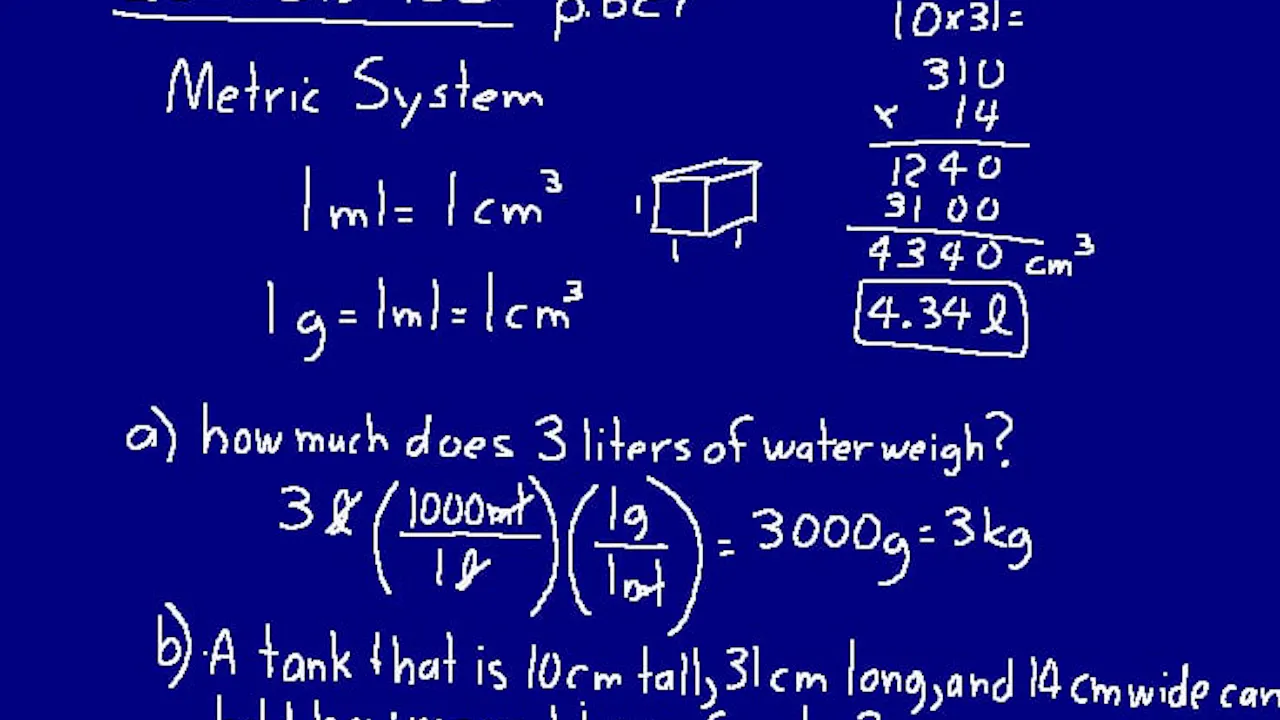 Metric System
1 ml = 1 cm³
1
1
1
1 g = 1 ml = 1 cm³
10x31=
310
x 14
1240
3100
4340 cm³
4.34 l
a) how much does 3 liters of water weigh?
3 l (1000 ml / 1 l) (1 g / 1 ml) = 3000g = 3kg
b) A tank that is 10cm tall, 31cm long, and 14 cm wide can